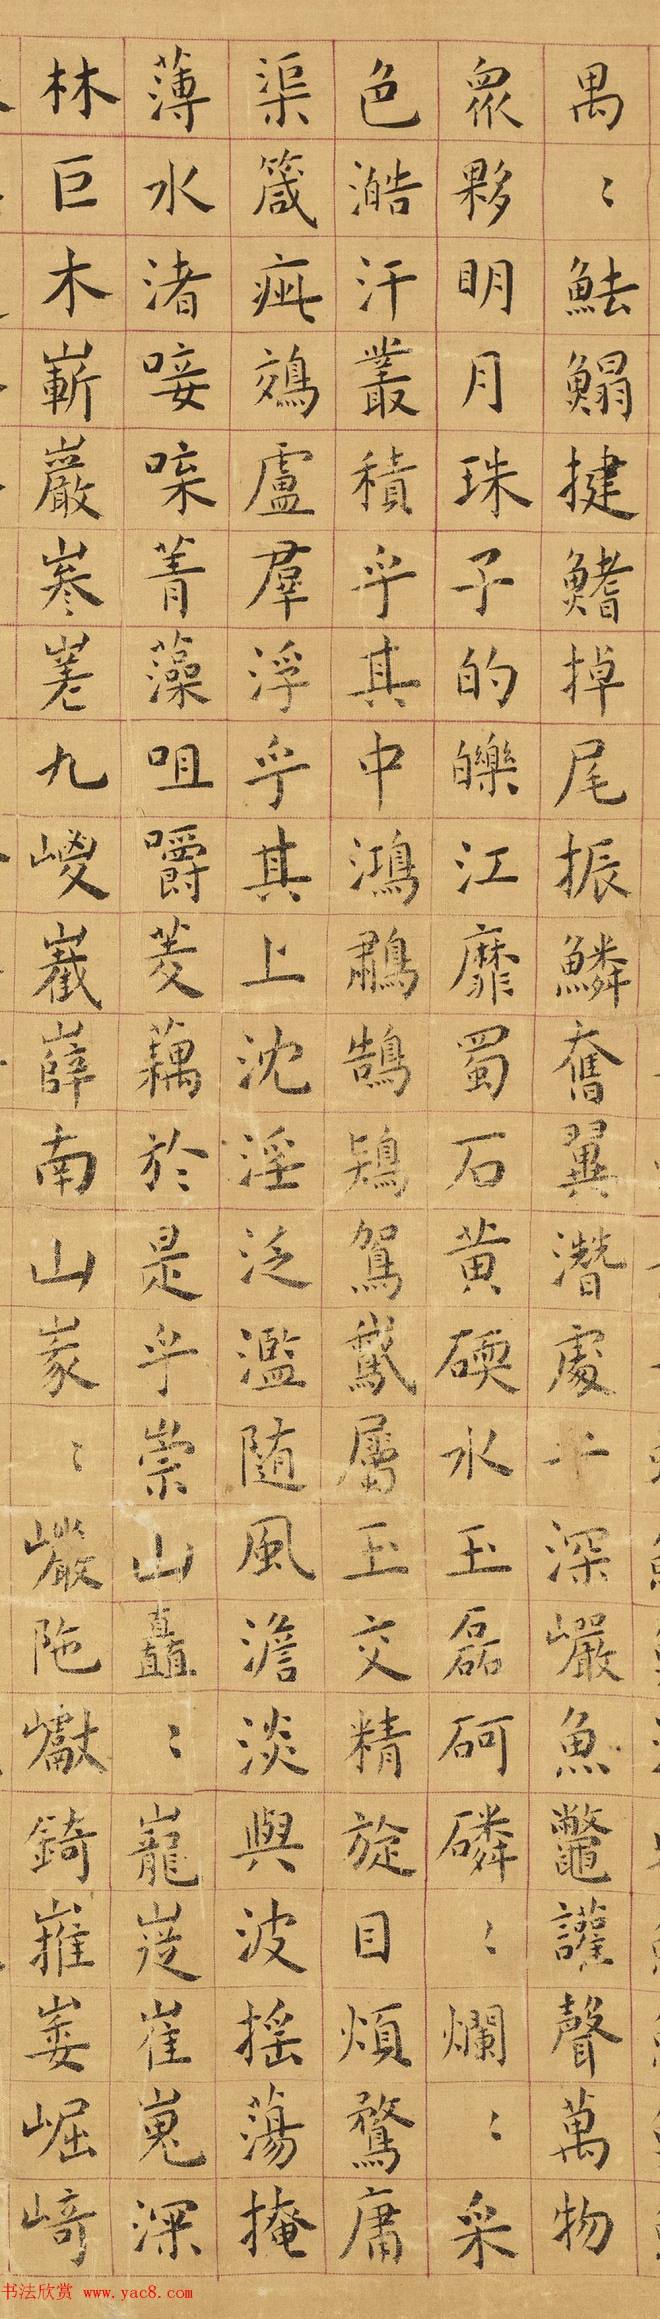 禺〻魼鰨揵鰭掉尾振鱗奮翼潛處乎深巖魚鼈讙聲萬物
衆夥明月珠子的皪江靡蜀石黄碝水玉磊砢磷〻爛〻采
色澔汗叢積乎其中鴻鷫鵠鴇駕鵞屬玉交精旋目煩鶩庸
渠箴疵鵁盧羣浮乎其上沈淫泛濫随風澹淡與波揺蕩掩
薄水渚唼喋菁藻咀嚼菱藕於是乎崇山矗〻巃嵸崔嵬深
林巨木嶄巖嵾嵳九嵕嶻嶭南山峩〻巖陁巘錡嶊崣崛崎
书法欣赏 www.yac8.com